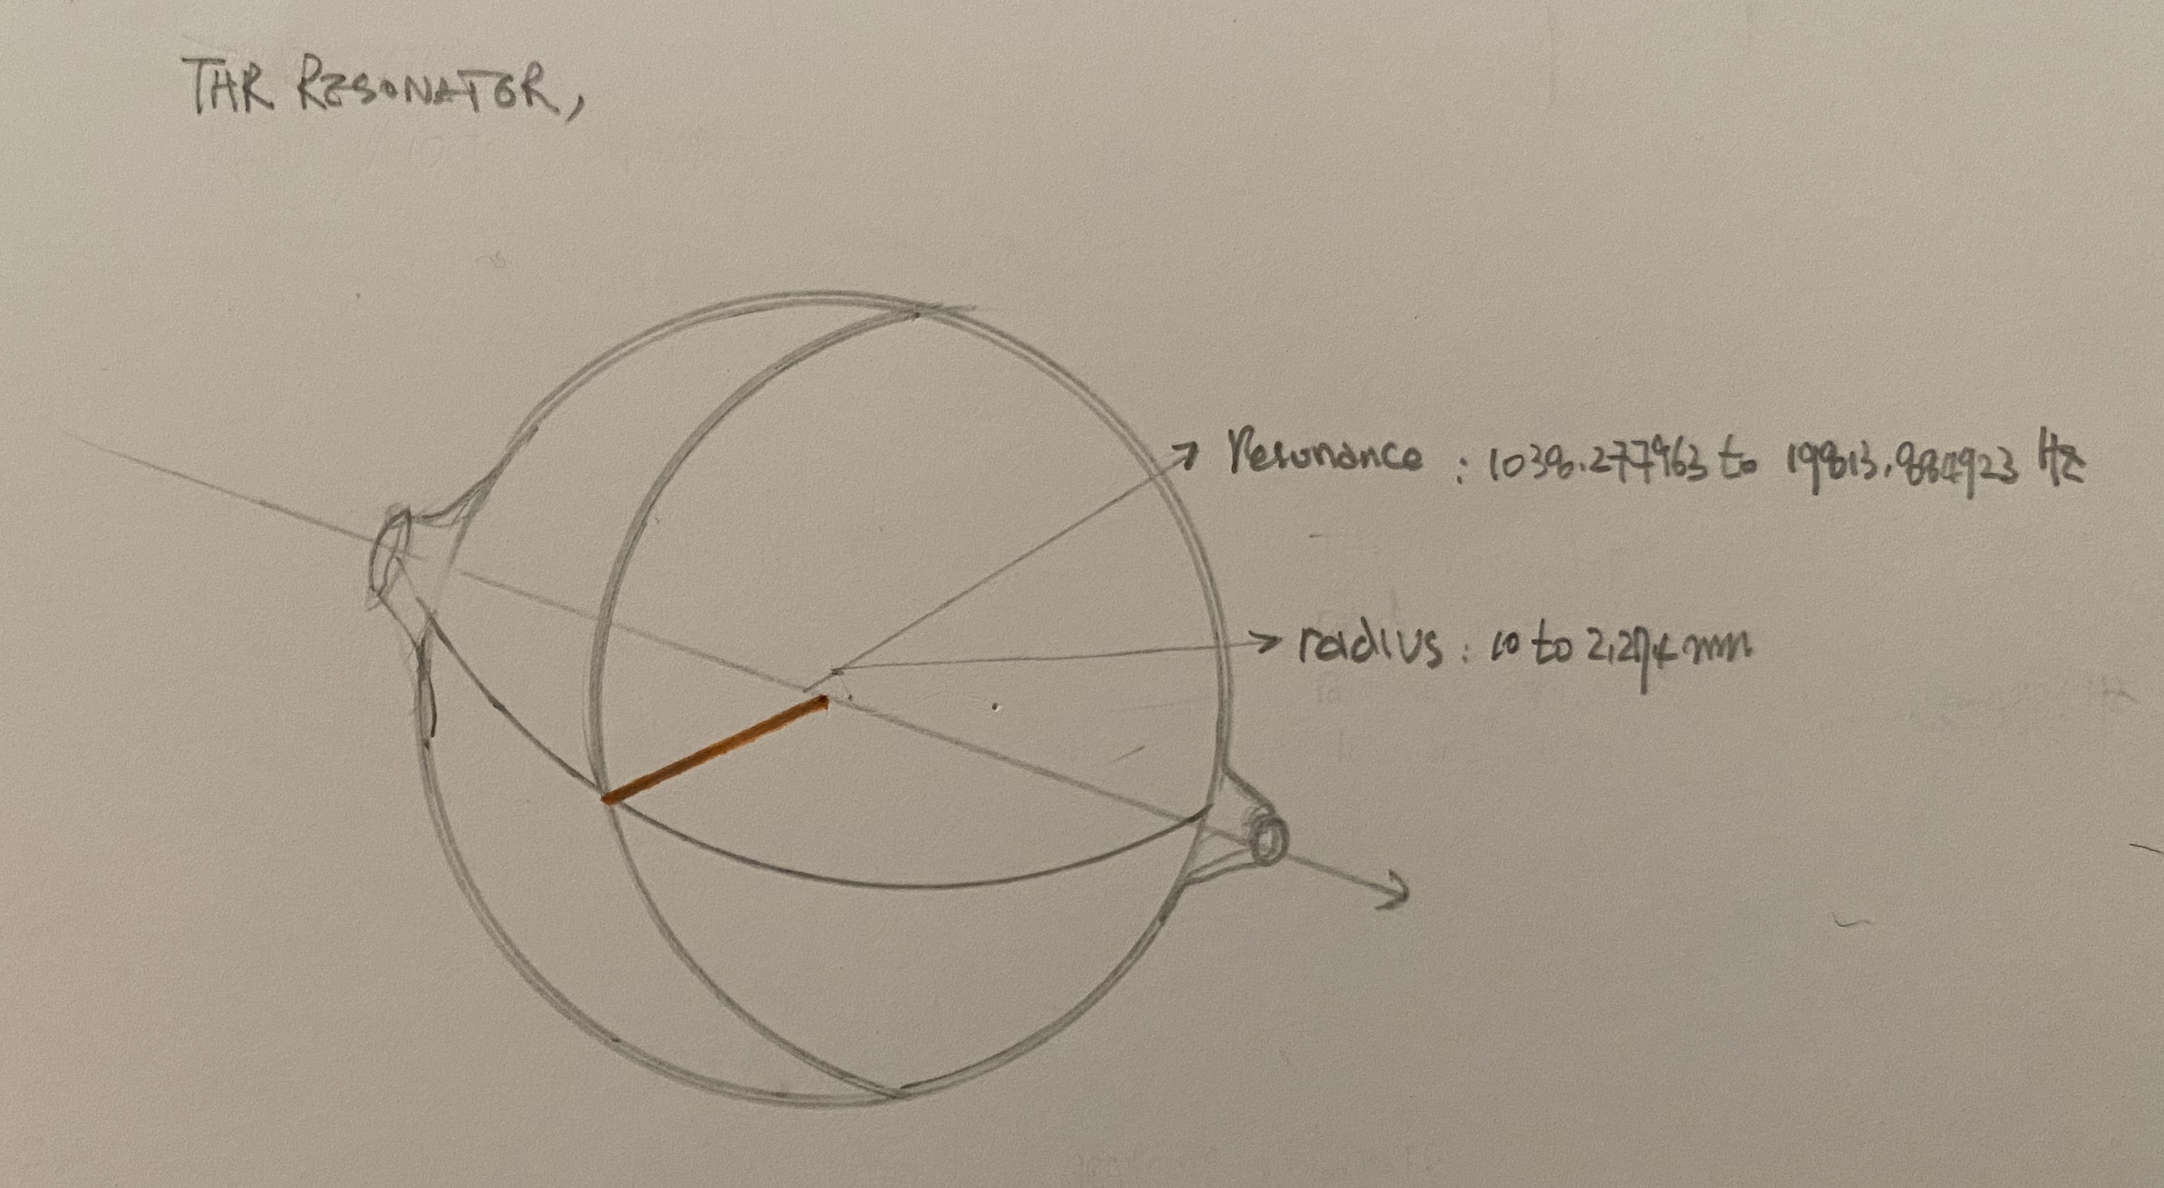 THR RESONATOR,
Resonance : 1038.277963 to 19813.884923 Hz
radius : 10 to 2.274 mm